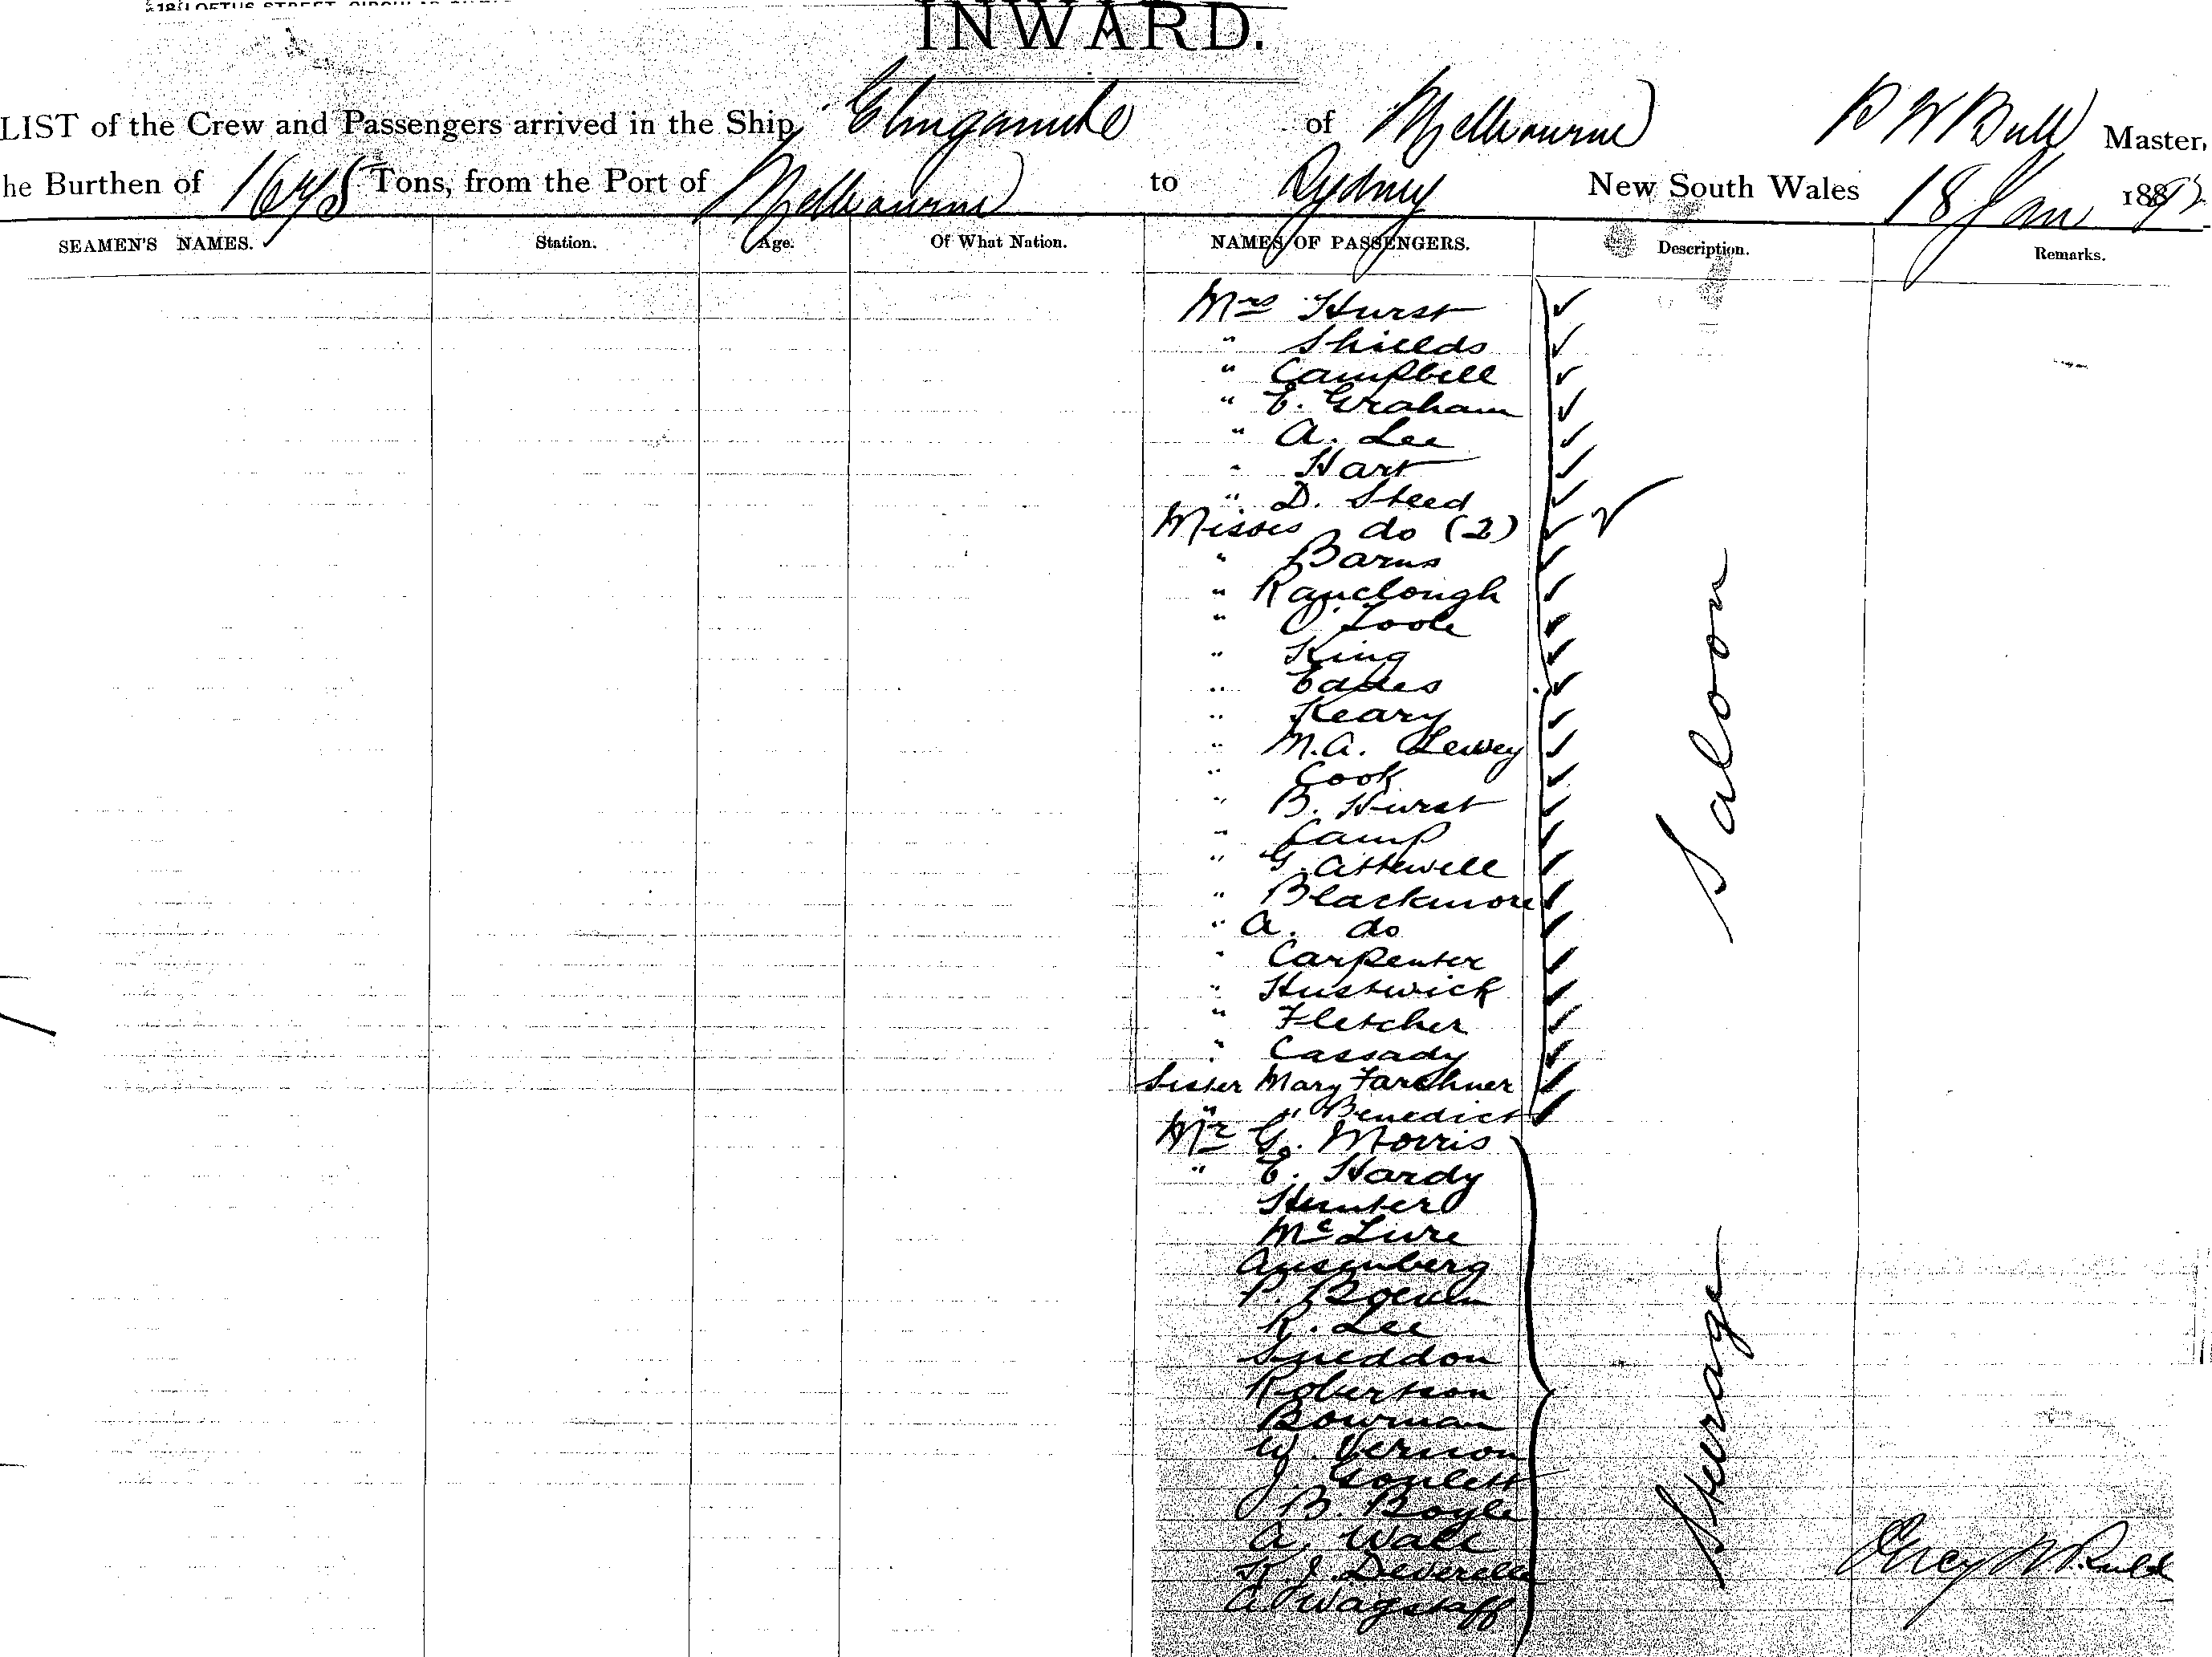 INWARD.
LIST of the Crew and Passengers arrived in the Ship Elingamite of Melbourne P W Bull Master,
he Burthen of 1675 Tons, from the Port of Melbourne to Sydney New South Wales 18 Jan 1892
SEAMEN'S NAMES. Station. Age. Of What Nation. NAMES OF PASSENGERS. Description. Remarks.
Mrs Hurst
" Shields
" Campbell
" E. Graham
" A. Lee
" Hart
" D. Steed
Misses do (2)
" Barns
" Ranclough
" O'Toole
" King
" Eades
" Keary
" M.A. Lewey
" Cook
" B. Hurst
" Camp
" G. Attewell
" Blackmore
" A. do
" Carpenter
" Hustwick
" Fletcher
" Cassady
Sister Mary
" " Benedict
Saloon
Mr G. Morris
" E. Hardy
Hunter
McLure
Ausenberg
P.
R. Lee
Sneddon
Robertson
Bowman
W. Vernon
J. Goulett
B. Boyle
A. Wall
K. J. Deverell
A. Wagstaff
Steerage
Percy W Bull